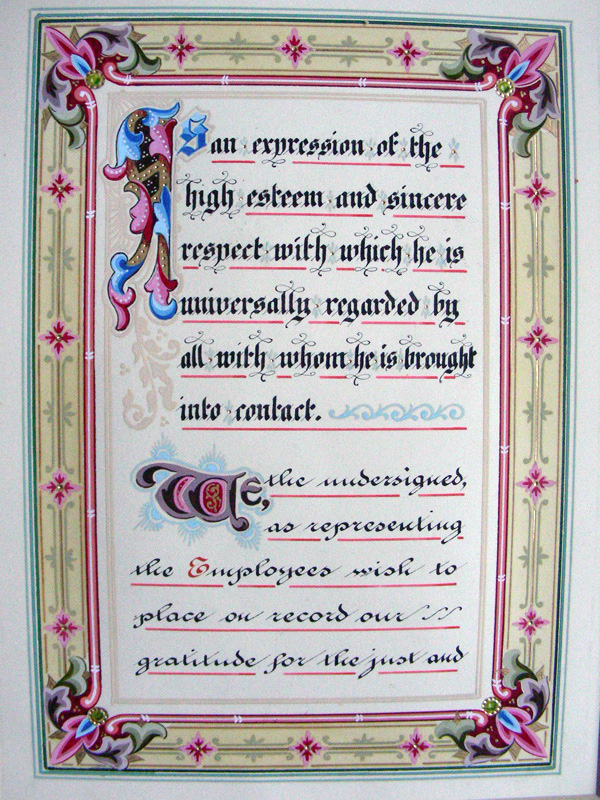 As an expression of the
high esteem and sincere
respect with which he is
universally regarded by
all with whom he is brought
into contact.
We, the undersigned,
as representing
the Employees wish to
place on record our
gratitude for the just and